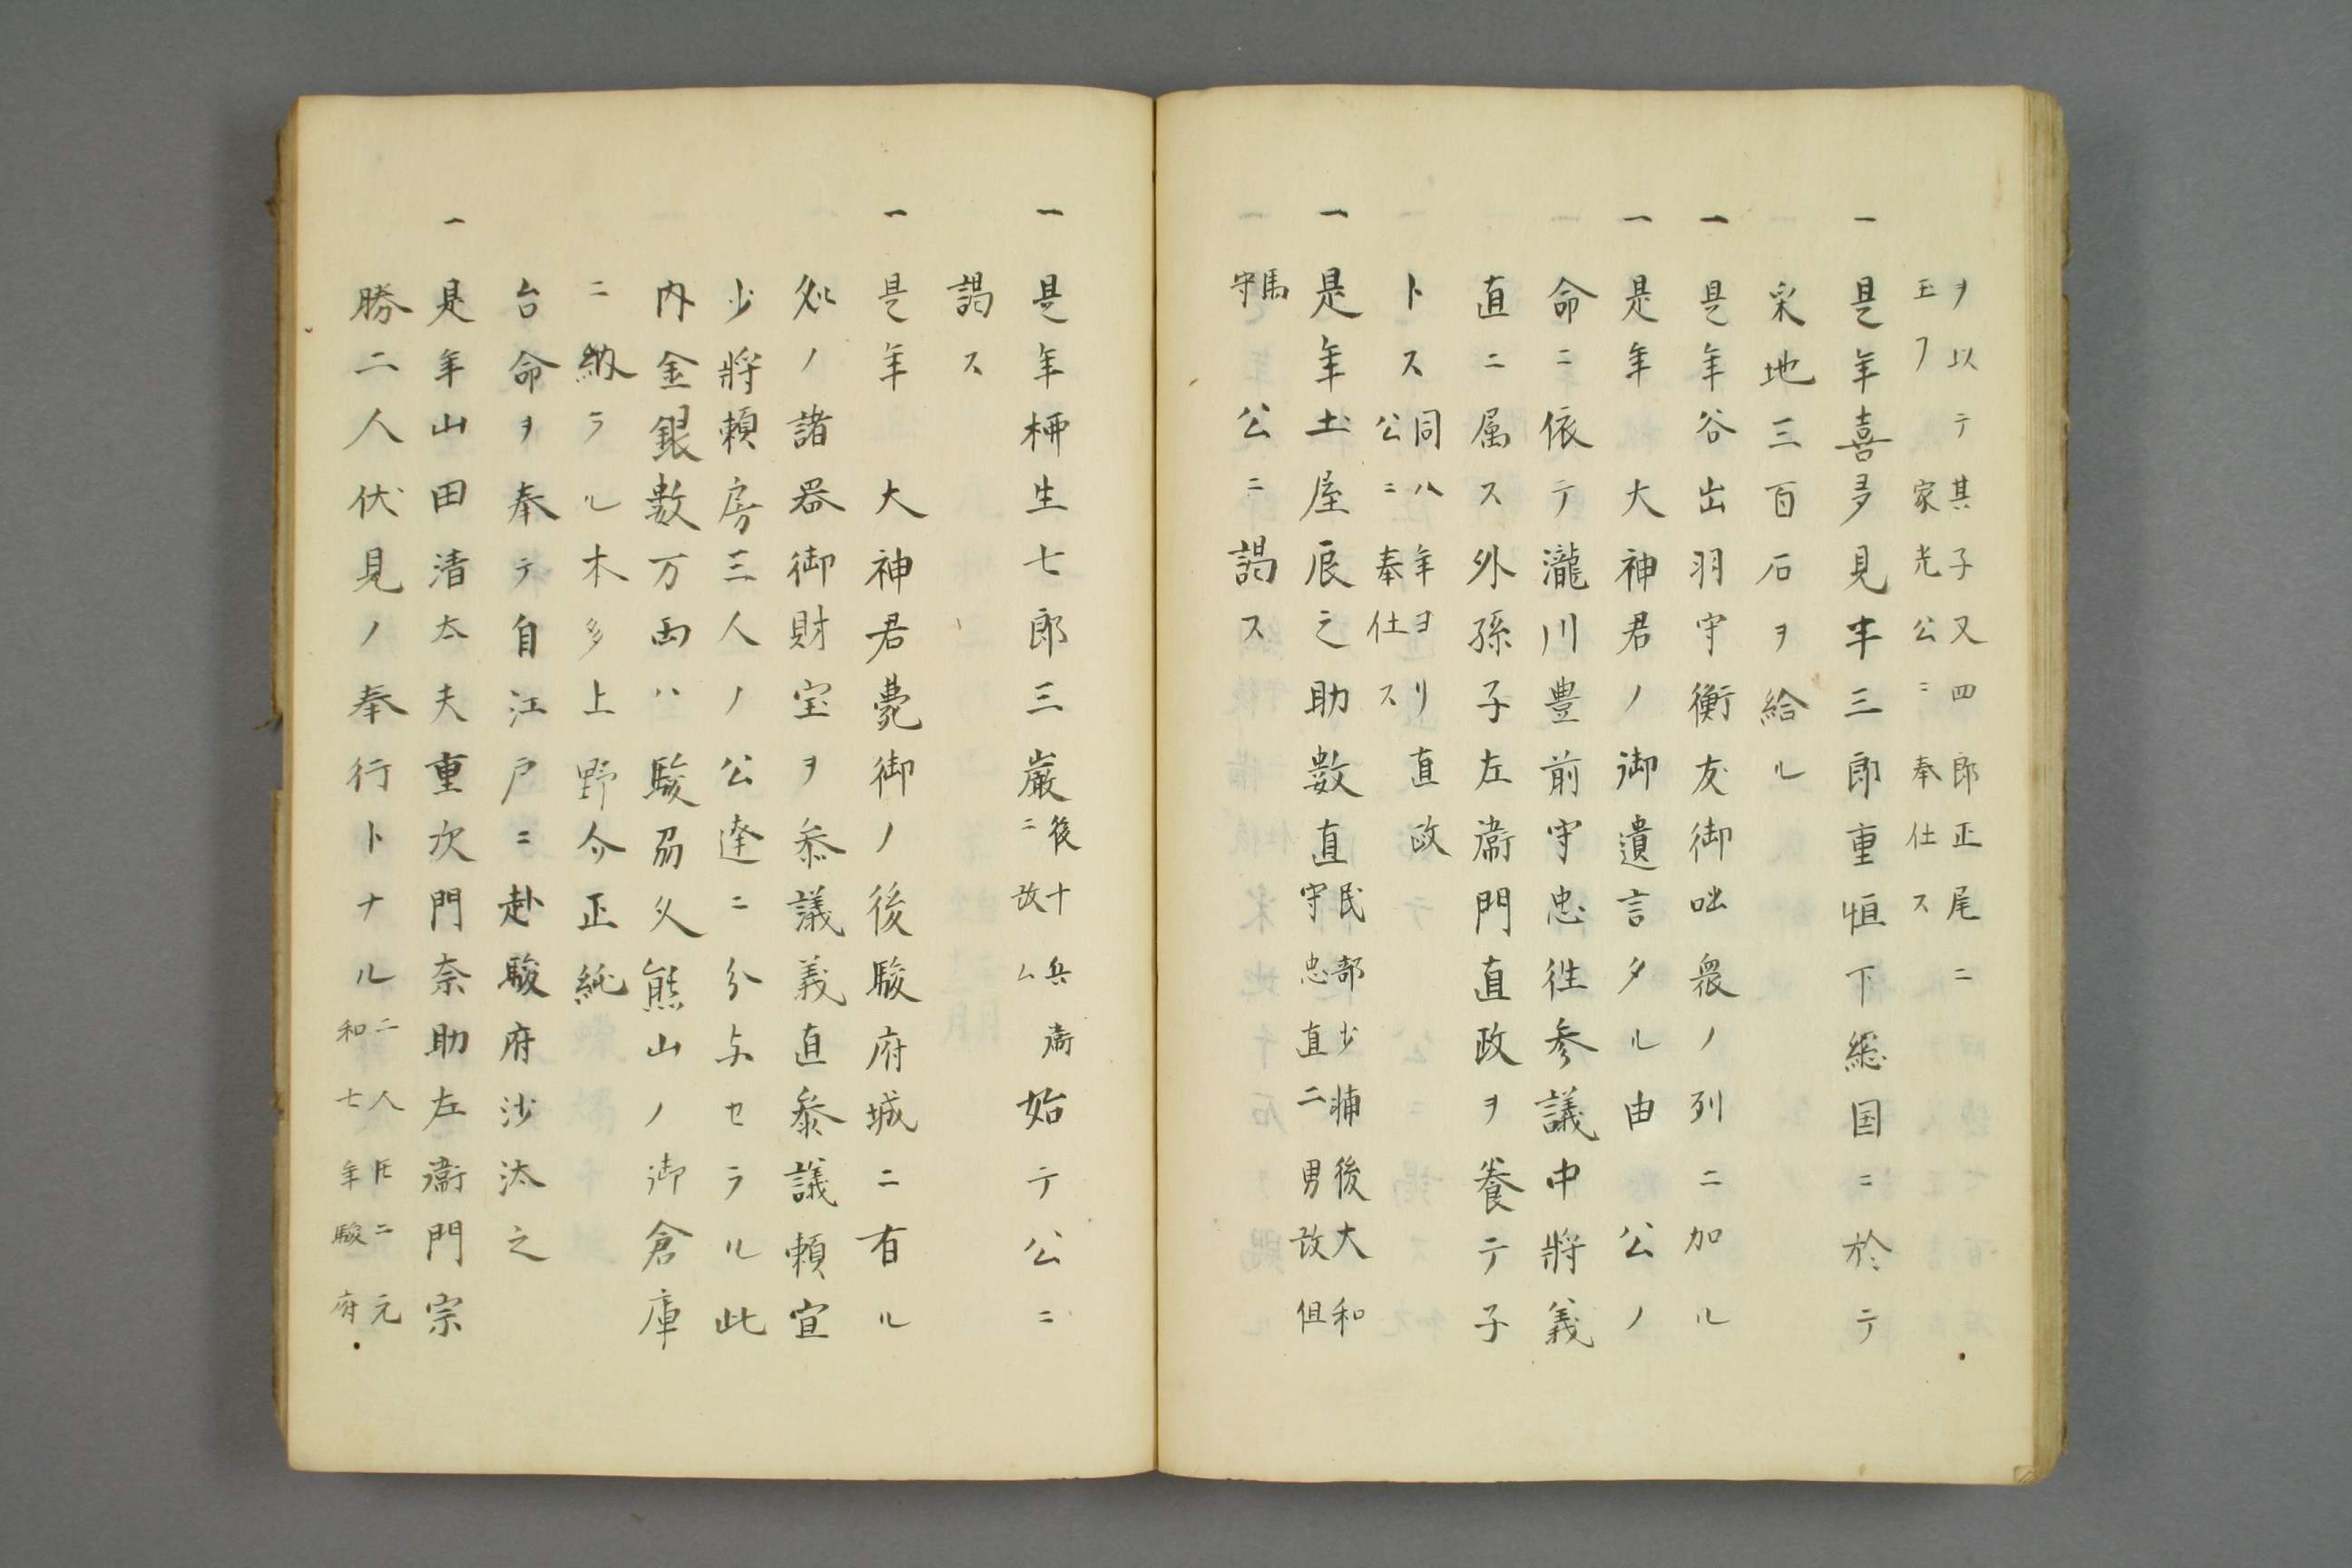 ヲ以テ其子又四郎正尾ニ
玉フ家光公ニ奉仕ス
一是年喜多見半三郎重恒下総国ニ於テ
采地三百石ヲ給ル
一是年谷出羽守衡友御咄衆ノ列ニ加ル
一是年大神君ノ御遺言タル由公ノ
命ニ依テ瀧川豊前守忠徃参議中将義
直ニ属ス外孫子左衛門直政ヲ養テ子
トス同八年ヨリ直政公ニ奉仕ス
一是年土屋辰之助数直民部少輔後大和守忠直二男改但
馬守公ニ謁ス
一是年柳生七郎三厳後十兵衛ニ改ム始テ公ニ
謁ス
一是年大神君薨御ノ後駿府城ニ有ル
処ノ諸器御財宝ヲ参議義直参議頼宣
少将頼房三人ノ公達ニ分与セラル此
内金銀数万両ハ駿刕久熊山ノ御倉庫
ニ納ラル木多上野介正純
台命ヲ奉テ自江戸ニ赴駿府沙汰之
一是年山田清太夫重次門奈助左衛門宗
勝二人伏見ノ奉行トナル二人圧ニ元和七年駿府